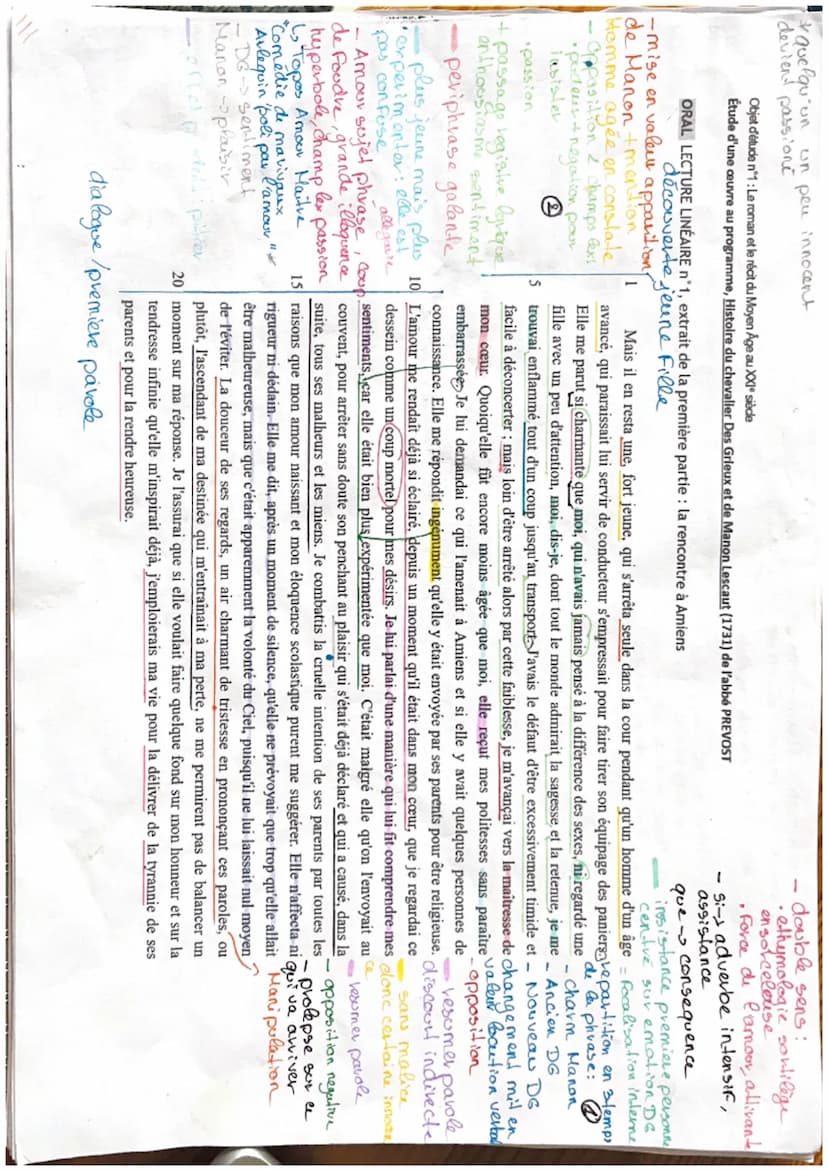 * quelqu'un un peu innocent
devient passioné
Objet d'étude n°1 : Le roman et le récit du Moyen Âge au XXIe siècle
Étude d'une œuvre au programme, Histoire du chevalier Des Grieux et de Manon Lescaut (1731) de l'abbé PREVOST
ORAL LECTURE LINÉAIRE n°1, extrait de la première partie : la rencontre à Amiens
découverte jeune fille
1 Mais il en resta une, fort jeune, qui s'arrêta seule dans la cour pendant qu'un homme d'un âge
avancé, qui paraissait lui servir de conducteur s'empressait pour faire tirer son équipage des paniers.
Elle me parut si charmante que moi, qui n'avais jamais pensé à la différence des sexes, ni regardé une
fille avec un peu d'attention, moi, dis-je, dont tout le monde admirait la sagesse et la retenue, je me
5 trouvai enflammé tout d'un coup jusqu'au transport. J'avais le défaut d'être excessivement timide et
facile à déconcerter ; mais loin d'être arrêté alors par cette faiblesse, je m'avançai vers la maîtresse de
mon cœur. Quoiqu'elle fût encore moins âgée que moi, elle reçut mes politesses sans paraître
embarrassée. Je lui demandai ce qui l'amenait à Amiens et si elle y avait quelques personnes de
connaissance. Elle me répondit ingénument qu'elle y était envoyée par ses parents pour être religieuse.
10 L'amour me rendait déjà si éclairé, depuis un moment qu'il était dans mon cœur, que je regardai ce
dessein comme un coup mortel pour mes désirs. Je lui parlai d'une manière qui lui fit comprendre mes
sentiments, car elle était bien plus expérimentée que moi. C'était malgré elle qu'on l'envoyait au
couvent, pour arrêter sans doute son penchant au plaisir qui s'était déjà déclaré et qui a causé, dans la
suite, tous ses malheurs et les miens. Je combattis la cruelle intention de ses parents par toutes les
15 raisons que mon amour naissant et mon éloquence scolastique purent me suggérer. Elle n'affecta ni
rigueur ni dédain. Elle me dit, après un moment de silence, qu'elle ne prévoyait que trop qu'elle allait
être malheureuse, mais que c'était apparemment la volonté du Ciel, puisqu'il ne lui laissait nul moyen
de l'éviter. La douceur de ses regards, un air charmant de tristesse en prononçant ces paroles, ou
plutôt, l'ascendant de ma destinée qui m'entraînait à ma perte, ne me permirent pas de balancer un
20 moment sur ma réponse. Je l'assurai que si elle voulait faire quelque fond sur mon honneur et sur la
tendresse infinie qu'elle m'inspirait déjà, j'emploierais ma vie pour la délivrer de la tyrannie de ses
parents et pour la rendre heureuse.
- mise en valeur apparition
de Manon + mention
homme agée en constate
- opposition 2 champs lexi
insister
②
• passion
+ passage registre lyrique
enthousiasme sentiment
periphrase galante
plus jeune mais plus
experimenter : elle est
pas confuse
allegorie
- Amour sujet phrase, coup
de foudre, grande illoquence
hyperbole, champ lex passion
↳ topos Amour Maitre
"comédie de marivaux
Arlequin poli par l'amour"
- DG → sentiment
Manon → plaisir
dialogue / premiere parole
- double sens :
• ethymologie sortilège
ensorceleuse
• Force de l'amour, attirant
- si → adverbe intensif,
assistance
que → consequence
insistance premiere person
centré sur emotion DG
= focalisation interne
repartition en 3 temps
de la phrase : ①
- charm Manon
- Ancien DG
- Nouveau DG
changement mit en
valeur locution verbal
- opposition
resumer parole
discourt indirecte
sans malice
donc certaine innoce
resumer parole
- opposition negative
- prolepse sur ce
qui va arriver
Manipulation